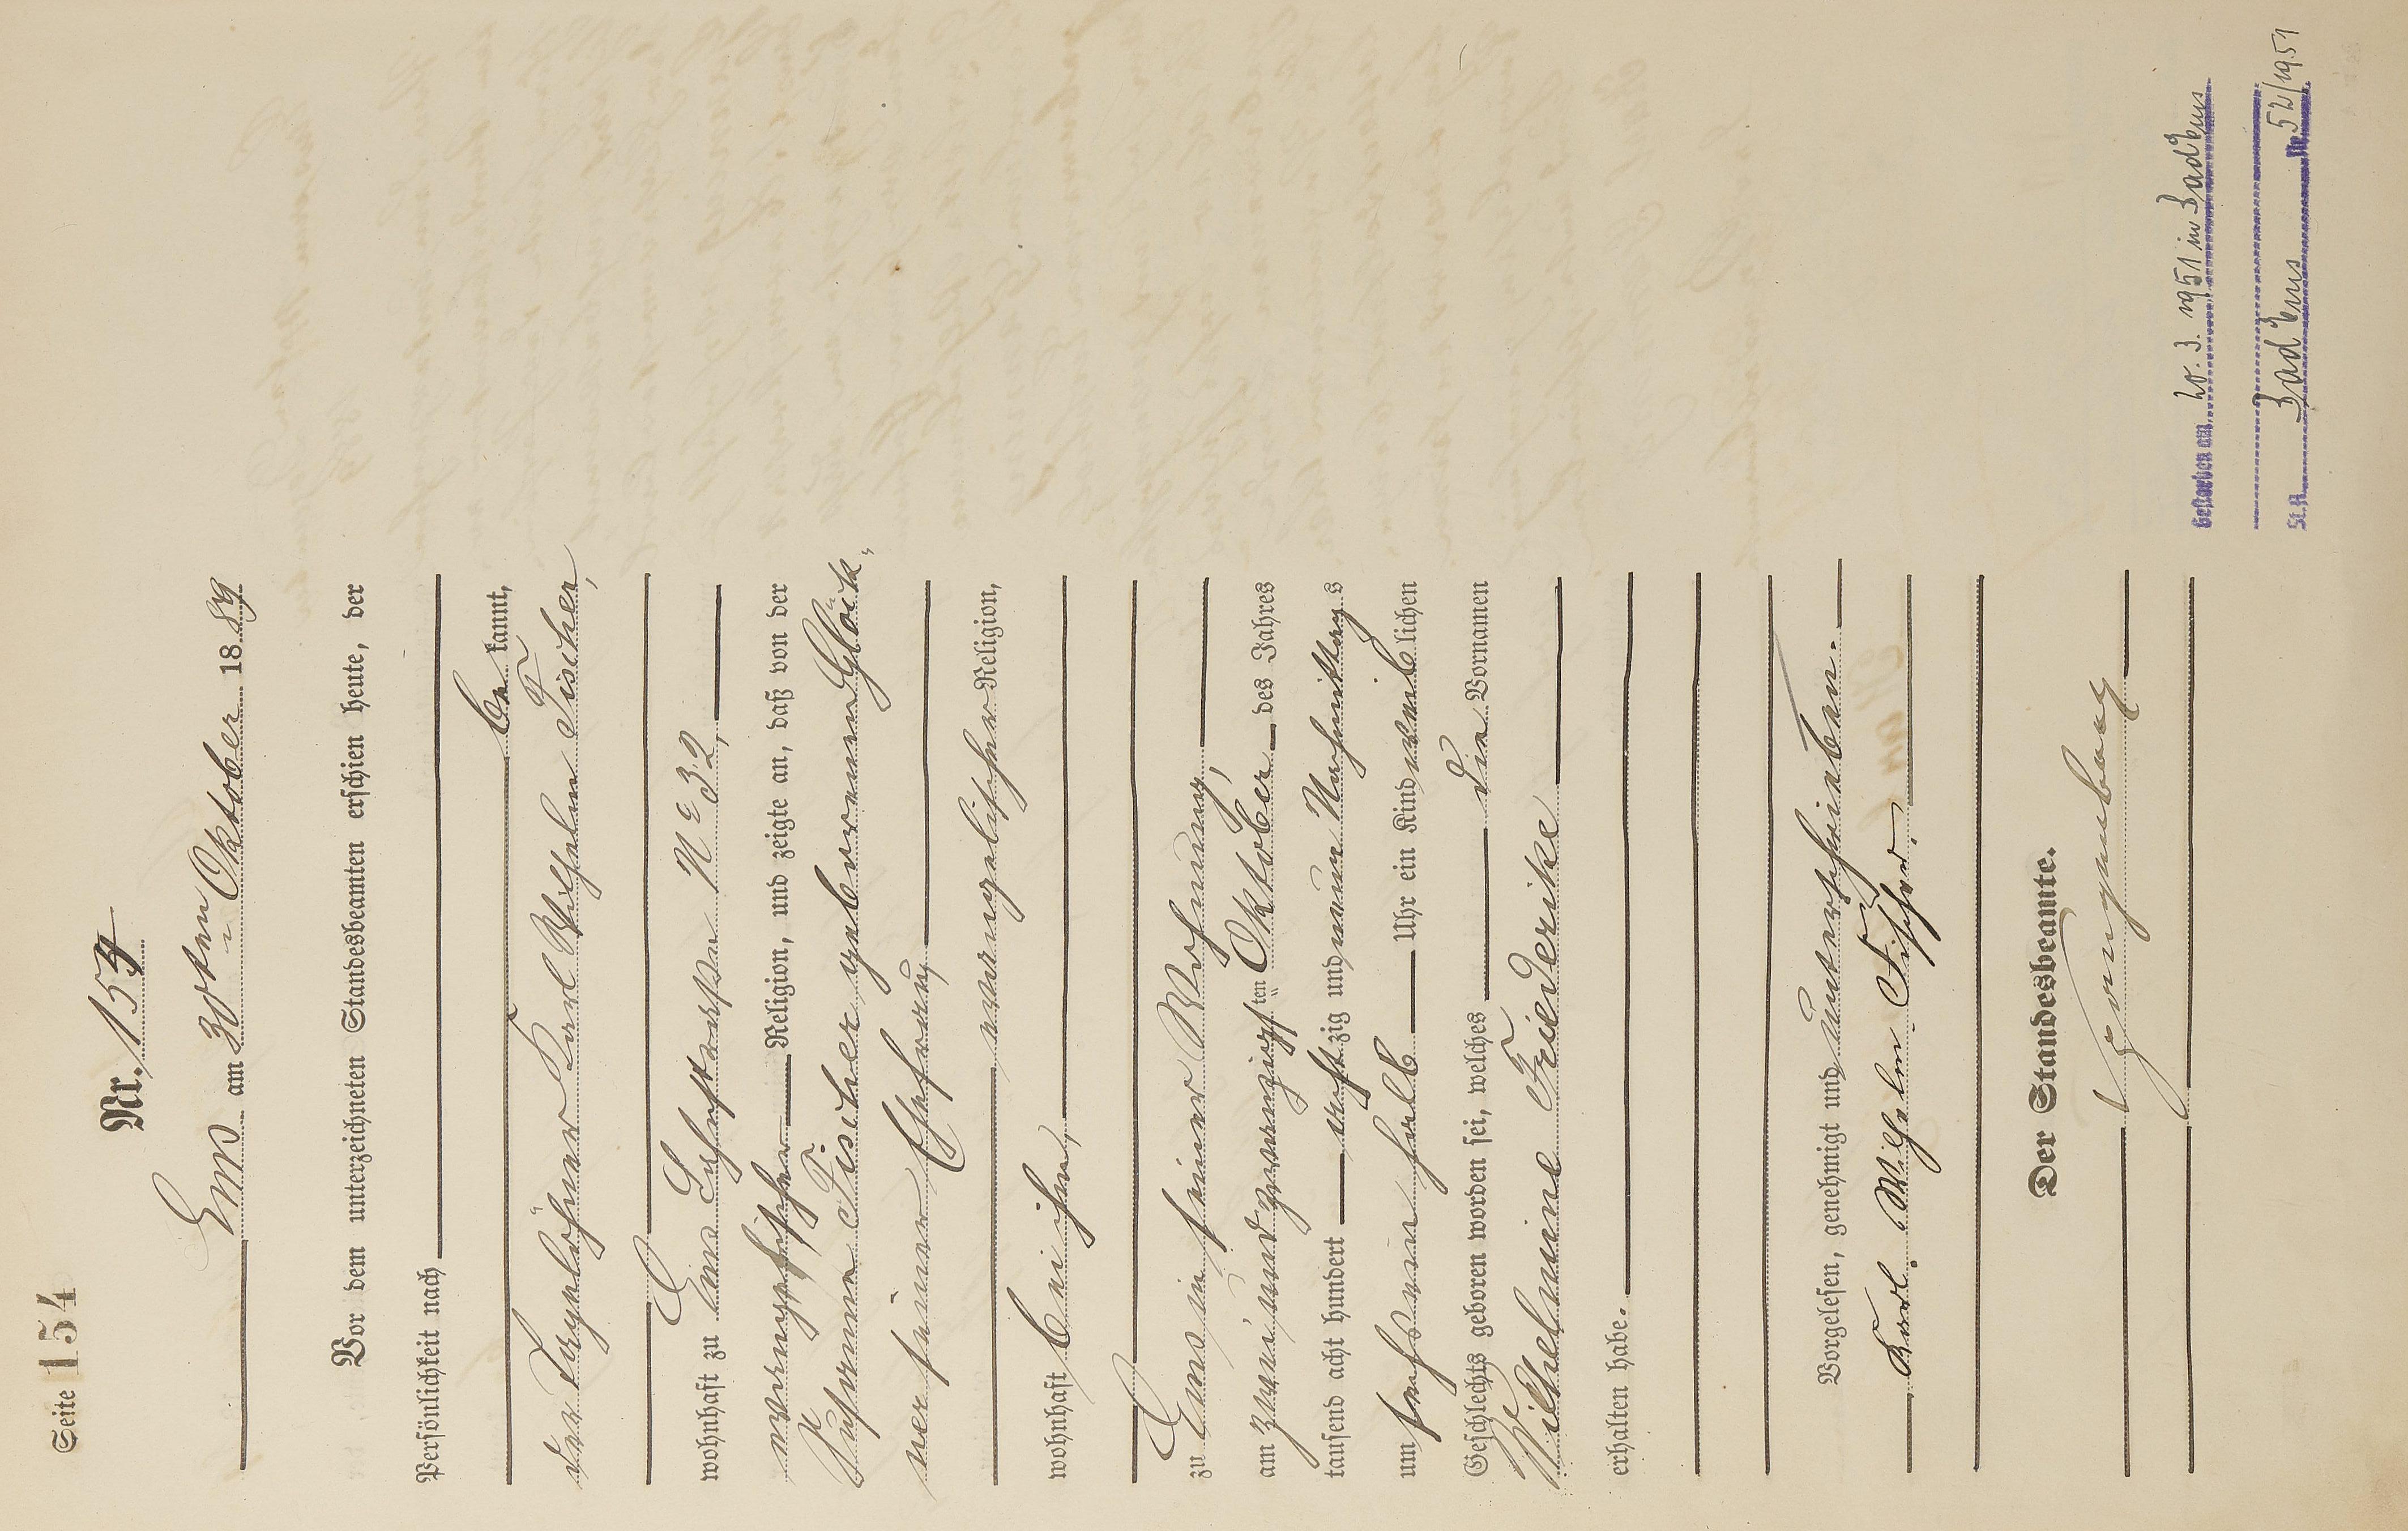 Seite 154
Nr. 154
Ems am 30sten Oktober 1889
Vor dem unterzeichneten Standesbeamten erschien heute, der
Persönlichkeit nach
be kannt,
der Tagelöhner Karl Wilhelm Fischer,
wohnhaft zu Ems No 32,
evangelischer Religion, und zeigte an, daß von der
Fischer geborenen Glöck-
ner seiner Ehefrau,
evangelischer Religion,
wohnhaft bei ihm,
zu Ems in seiner Wohnung,
am zwei und zwanzigsten Oktober des Jahres
tausend acht hundert acht zig und neun Nachmittags
um sechs ein halb Uhr ein Kind weib lichen
Geschlechts geboren worden sei, welches die Vornamen
Wilhelmine Friederike
erhalten habe.
Vorgelesen, genehmigt und unterschrieben.
Karl. Wilhelm. Fischer.
Der Standesbeamte.
Gestorben am 20. 3. 1951 in Bad Ems
St. A. Bad Ems Nr. 52/1951